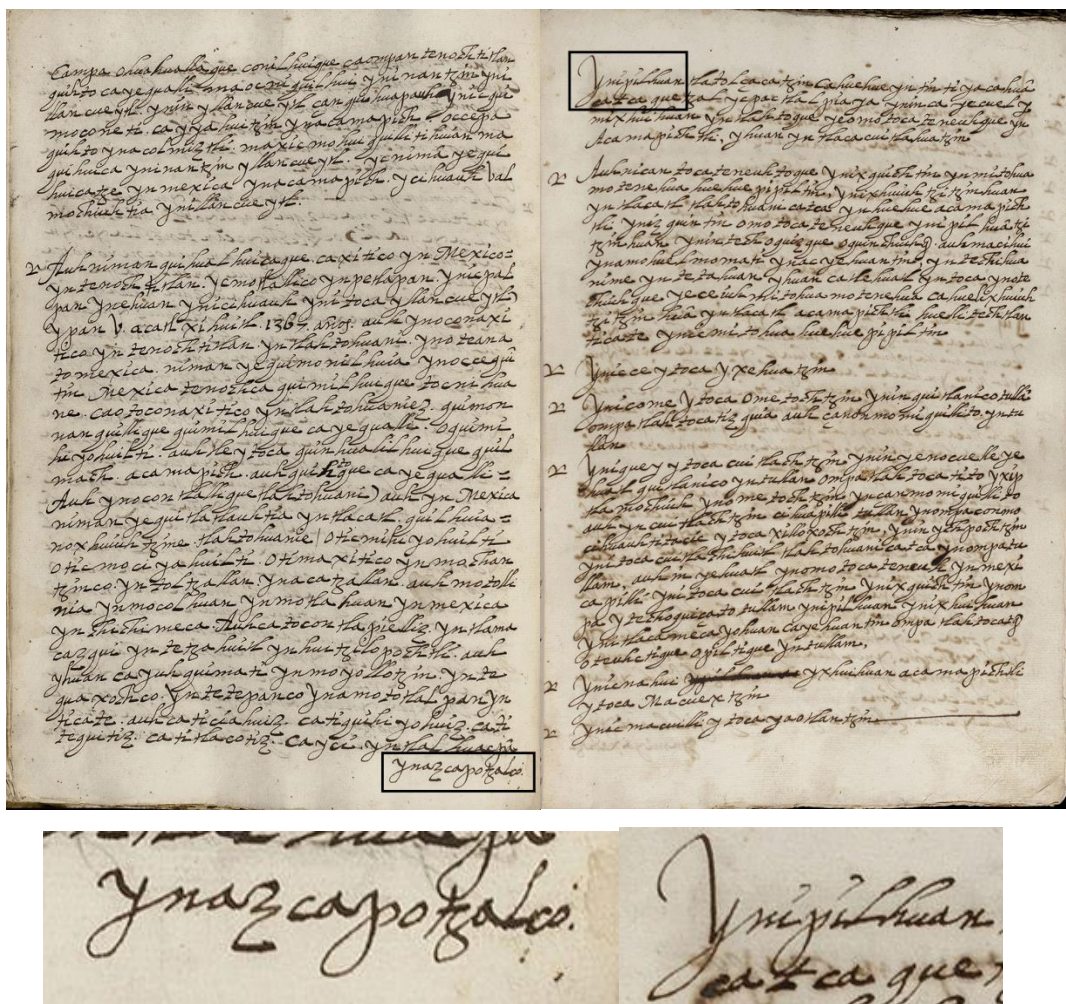 Campa ohuahuallaque conilhuique caompan tenochtitlan
quihto ca ye qualli ma oc niquilhui yninantzin yni
llancueytl. ynin yllancueytl can quihuapauh yniqui
moconeti. ca yyahuitzin ynacamapich. Occepa
quihto ynacolmiztli. maximohuiquilitihuan ma
quihuica yninantzin yllancueytl. ye nima yequi
huicatze ynmexica ynacamapich. ycihuauh val
mochiuhtia ynillancueytl.
Auh niman quihualhuicaque caxitico yn Mexico=
yntenochtitlan. yemotlallico ynpetlapan. ynicpal
pan ynehuan ynicihuauh ynitoca yllancueytl)
ypan V. acatl xihuitl. 1367. años. auh ynoconaxi
tico yn tenochtitlan yn tlahtohuani. ynoteana
to mexica. niman yequimonilhuia ynoccequi
tin Mexica tenochca quimilhuique tocnihua
ne. caotoconaxitico yntlahtohuaniez. quimon
nanquilique quimilhuique ca yequalli. oquimi
hiyohuilti. auh tle ytoca quinhualilhuique quil
mach. acamapich. auh quihtoque ca yequalli=
Auh ynocontlallique tlahtohuani) auh yn Mexica
niman yequitlatlauhtia yntlacatl. quilhuia=
noxhuiuhtzine. tlahtohuanie/ oticmihiyohuilti
oticmociyahuilti. otimaxitico ynmochan
tzinco. yntoltzallan ynacatzallan. auh motolli
nia ynmocolhuan ynmotlahuan ynmexica
yn chichimeca. Auh ca toconttlapielliz. yntlama
cazqui yntetzahuitl yn huitzilopochtli. auh
yhuan ca yuhquimati ynmoyollotzin. ynte
quaxochco. yntetepanco ynamototlalpan yn
ticate. auh ca ticiahuiz. ca tiquihiyohuiz. cati
tequitiz. ca titlacotiz. ca yei. yntlalhuacpa
ynazcapotzalco.
ynipilhuan tlatolcacatzin cahuehueyntin tiyacahua
catca quetzalyepactlapiaya yninca yecuel y
mixhuihuan yntlahtoque yeomotocateneuhque yn
Acamapichtli. yhuan yntlacacuitlahuatzin
Auh nican tocateneuhtoque ynixquichtin ynmitohua
motenehua huehue pipiltin, ynixhuiuhtzitzinhuan
yn tlacatl tlahtohuani catca yn huehue acamapich
tli yniz quintin omotocateneuhque ynipilhuatzi
tzinhuan ynintechquizque oquinchiuhq. auh macihui
ynamohuelmomati ynac yehuantin, yntechihua
nime yntetahuan yhuan catlehuatl yntoca ynote
chiuhque yeceiuh mitohua motenehua cahuel ixhuiuh
tzitzinhua yntlacatl acamapichtli huellitechtlan
ticate ynic mitohua huehue pipiltin
ynic ce ytoca yxehuatzin
ynic ome ytoca Ometochtzin ynin quitlanico tulla
ompa tlahtocatizquia auh çanommomiquilito. yntu
llan
yniquey ytoca cuitlachtzin ynin yenocuelle ye
huatl quitlanico yntullan ompa tlahtocatito yxip
tla mochiuh ynometochtzin yncanmomiquillito
auh yn cuitlachtzin cihuapilli tullan ynompaconmo
cihuauhtitacic ytoca xilloxochtzin, ynin ychpochtzin
ynitoca cuitlachihuitl tlahtohuani catca ynompatu
llam. auh in yehuatl ynomotocateneuh ynmexi
capilli ynitoca cuitlachtzin ynixquichtin ynom
pa ytechquizato tullam ynipilhuan ynixhuihuan
yni tlacamecayohuan ca yehuantin ompa tlahtocatq
oteuhctique opiltique yntullam,
ynic nahui yxhuihuan acamapichtli
ytoca Macuextzin
ynic macuilli ytoca yaotlantzin
ynazcapotzalco.
ynipilhuan
catca que